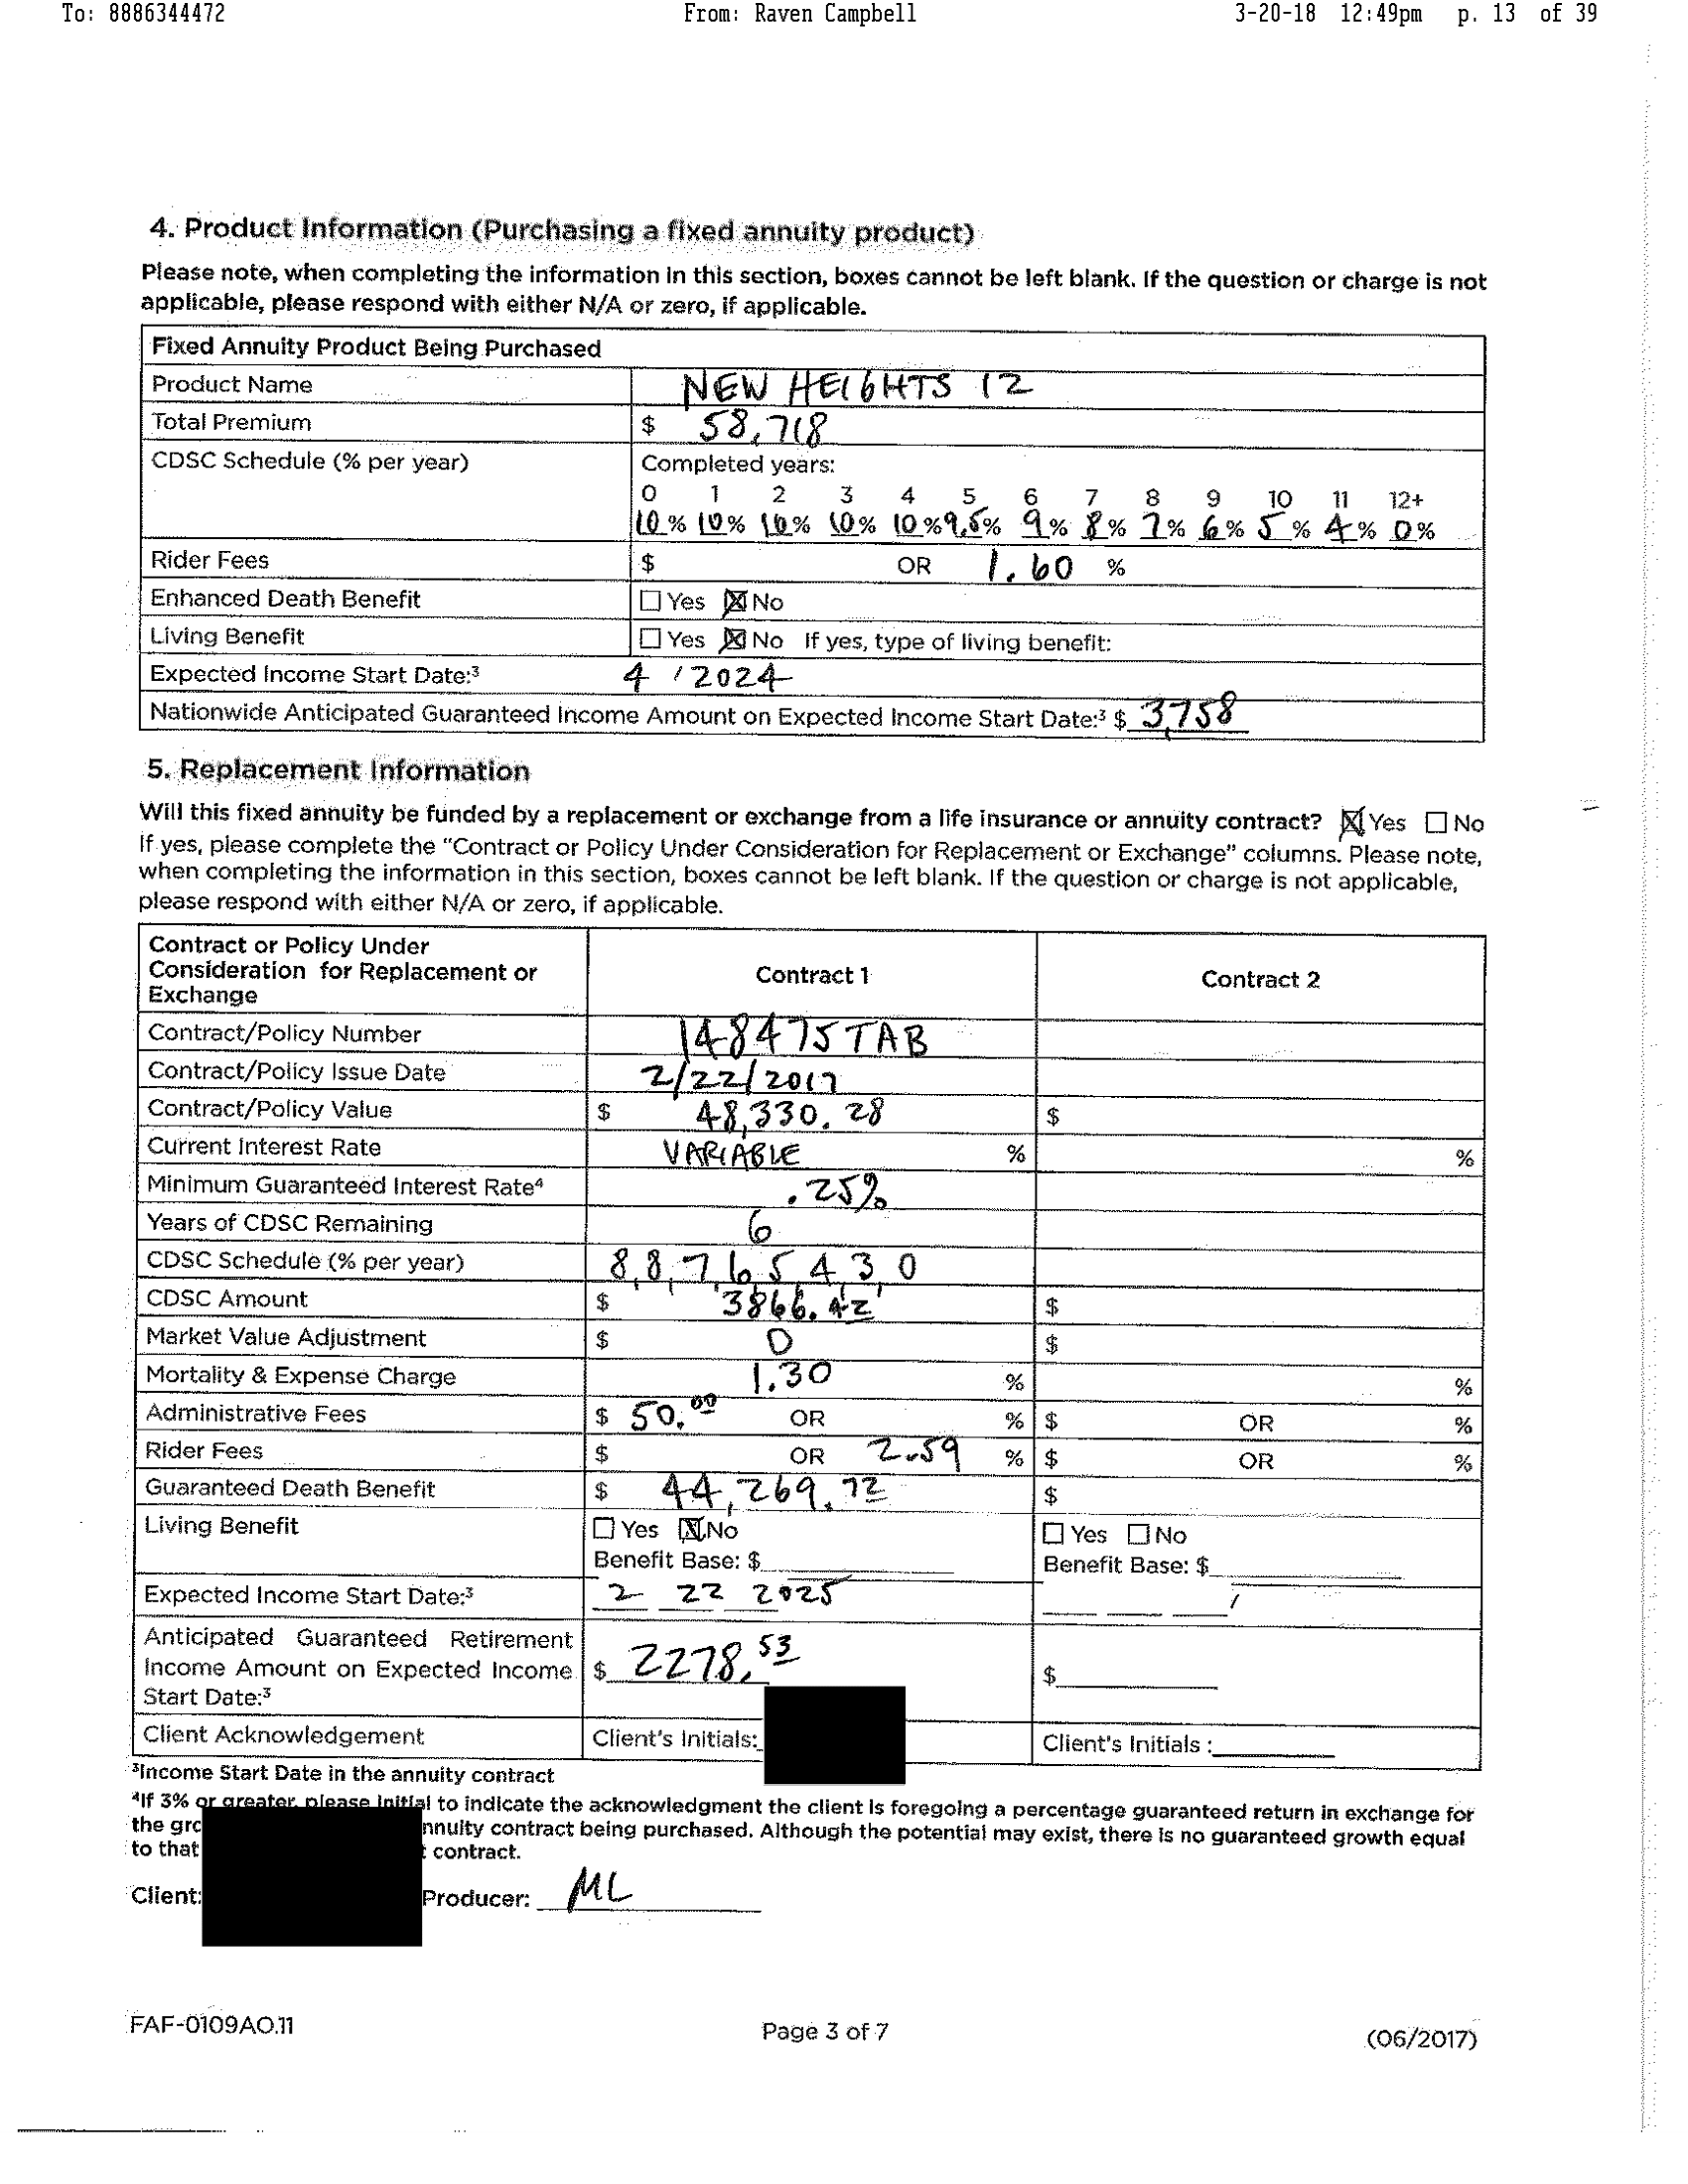 To: 8886344472 From: Raven Campbell 3-20-18 12:49pm p. 13 of 39
4. Product Information (Purchasing a fixed annuity product)
Please note, when completing the information in this section, boxes cannot be left blank. If the question or charge is not
applicable, please respond with either N/A or zero, if applicable.
Fixed Annuity Product Being Purchased
Product Name NEW HEIGHTS 12
Total Premium $ 58,718
CDSC Schedule (% per year) Completed years:
0 1 2 3 4 5 6 7 8 9 10 11 12+
10% 10% 10% 10% 10% 9.5% 9% 8% 7% 6% 5% 4% 0%
Rider Fees $ OR 1.60 %
Enhanced Death Benefit ☐ Yes ☒ No
Living Benefit ☐ Yes ☒ No If yes, type of living benefit:
Expected Income Start Date:³ 4 / 2024
Nationwide Anticipated Guaranteed Income Amount on Expected Income Start Date:³ $ 3,758
5. Replacement Information
Will this fixed annuity be funded by a replacement or exchange from a life insurance or annuity contract? ☒ Yes ☐ No
If yes, please complete the "Contract or Policy Under Consideration for Replacement or Exchange" columns. Please note,
when completing the information in this section, boxes cannot be left blank. If the question or charge is not applicable,
please respond with either N/A or zero, if applicable.
Contract or Policy Under
Consideration for Replacement or
Exchange
Contract 1 Contract 2
Contract/Policy Number 148475TAB
Contract/Policy Issue Date 2/22/2017
Contract/Policy Value $ 48,330.28 $
Current Interest Rate VARIABLE % %
Minimum Guaranteed Interest Rate⁴ .25%
Years of CDSC Remaining 6
CDSC Schedule (% per year) 8,8,7,6,5,4,3,0
CDSC Amount $ 3866.42 $
Market Value Adjustment $ 0 $
Mortality & Expense Charge 1.30 % %
Administrative Fees $ 50.00 OR % $ OR %
Rider Fees $ OR 2.59 % $ OR %
Guaranteed Death Benefit $ 44,269.72 $
Living Benefit ☐ Yes ☒ No ☐ Yes ☐ No
Benefit Base: $ Benefit Base: $
Expected Income Start Date:³ 2 22 2025 /
Anticipated Guaranteed Retirement
Income Amount on Expected Income $ 2278.53 $
Start Date:³
Client Acknowledgement Client's Initials: Client's Initials :
³Income Start Date in the annuity contract
⁴If 3% or greater, please initial to indicate the acknowledgment the client is foregoing a percentage guaranteed return in exchange for
the gro nnuity contract being purchased. Although the potential may exist, there is no guaranteed growth equal
to that contract.
Client: Producer: ML
FAF-0109AO.11 Page 3 of 7 (06/2017)